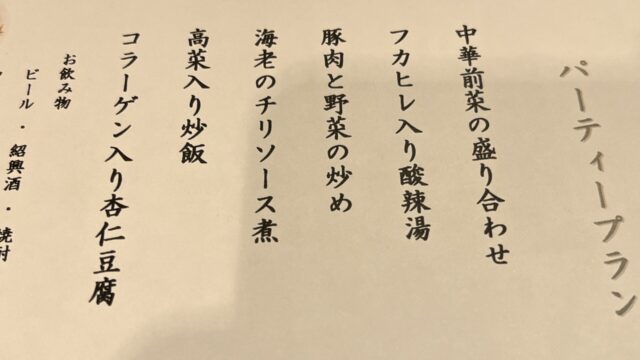 パーティープラン
中華前菜の盛り合わせ
フカヒレ入り酸辣湯
豚肉と野菜の炒め
海老のチリソース煮
高菜入り炒飯
コラーゲン入り杏仁豆腐
お飲み物
ビール・紹興酒・焼酎